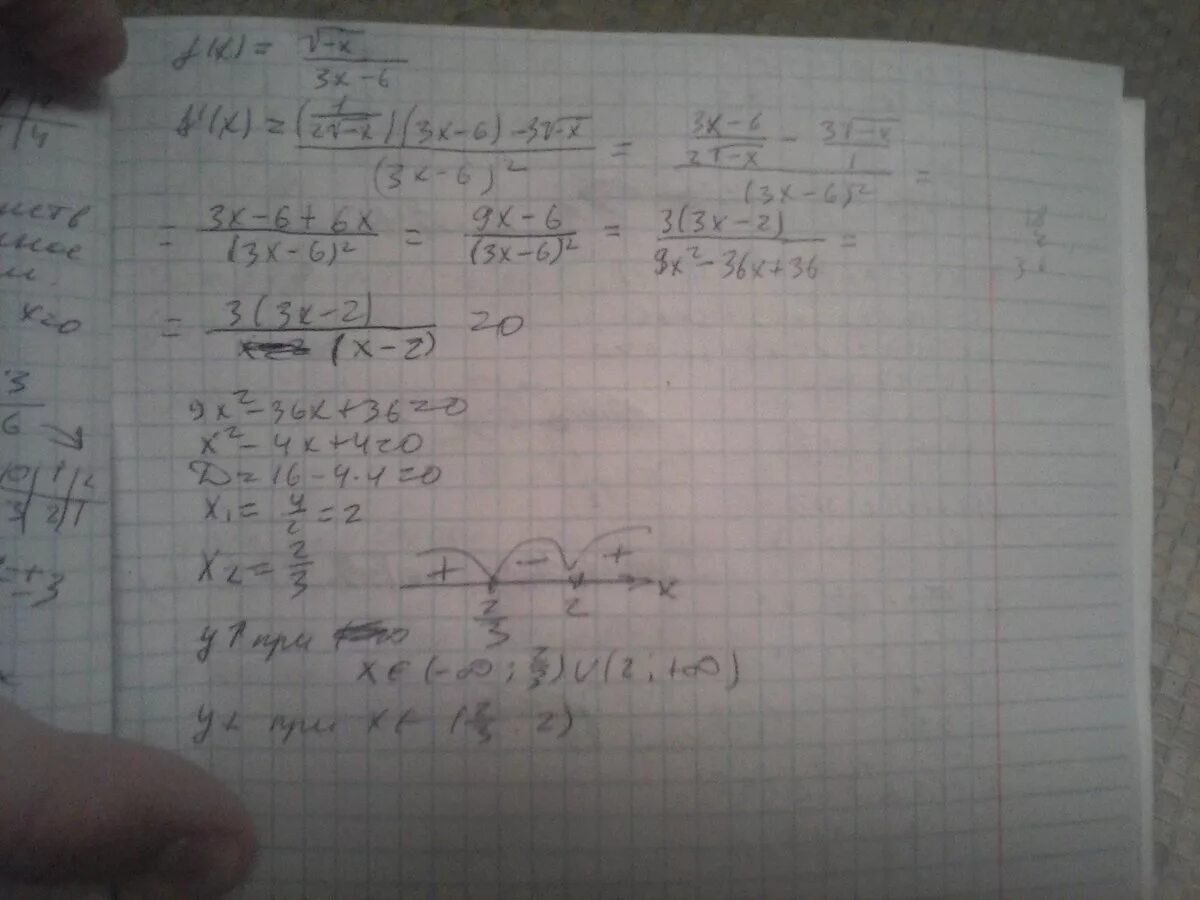 f(x) = √-x / 3x-6
f'(x) = (1/2√-x)(3x-6) - 3√-x / (3x-6)² = 3x-6/2√-x - 3√-x/1 / (3x-6)² =
= 3x-6+6x / (3x-6)² = 9x-6 / (3x-6)² = 3(3x-2) / 9x²-36x+36 =
= 3(3x-2) / (x-2) =0
9x²-36x+36=0
x²-4x+4=0
D=16-4·4=0
x₁= 4/2 =2
x₂= 2/3
+ - +
2/3 2 x
y↑ при
x∈(-∞; 2/3)∪(2; +∞)
y↓ при x∈ (2/3 2)
4
нств
x=0
3
6
0 1 2
3 2 1
3